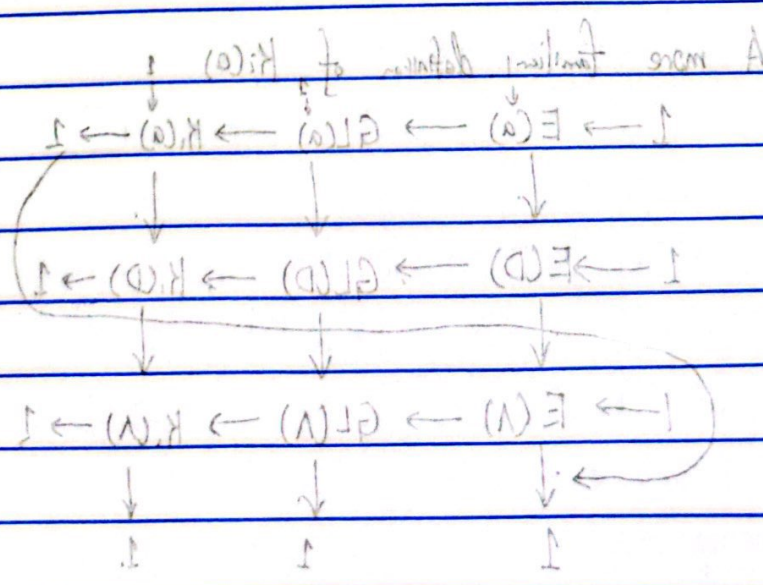 A more familiar definition of K₁(a)
1
1 → E(a) → GL(a) → K₁(a) → 1
1 → E(D) → GL(D) → K₁(D) → 1
1 → E(Λ) → GL(Λ) → K₁(Λ) → 1
1 1 1